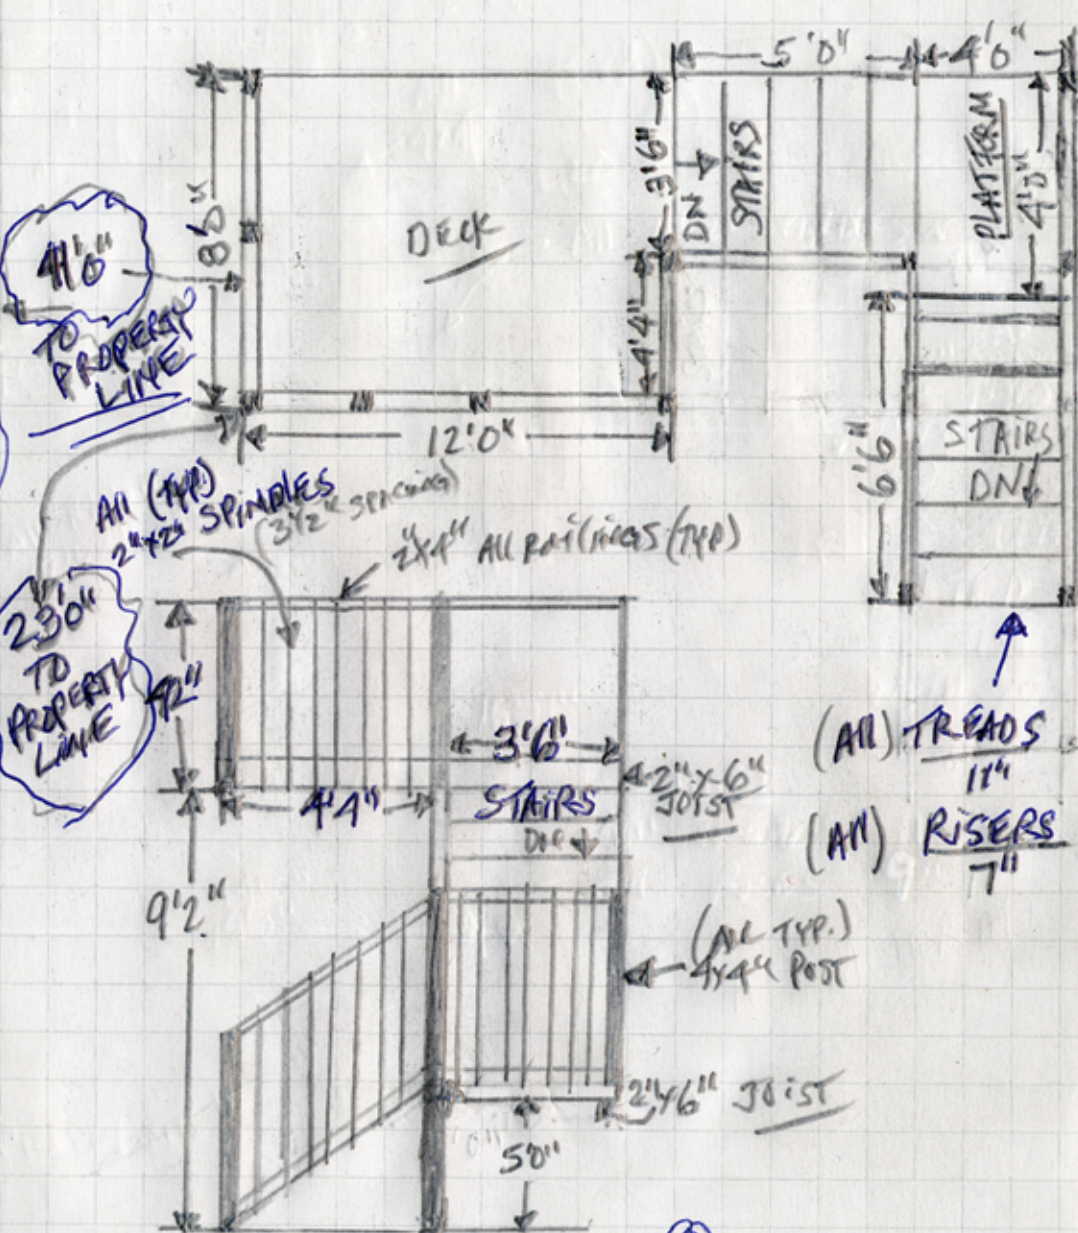 5'0"
4'0"
3'6"
DN
STAIRS
PLATFORM
4'0"
DECK
TO
PROPERTY
LINE
4'4"
12'0"
6'6"
STAIRS
DN
All (TYP)
2"x2" SPINDLES
(3 1/2" SPACING)
2"x4" All RAILINGS (TYP)
23'0"
TO
PROPERTY
LINE
42"
3'6"
4'4"
STAIRS
2"x6"
JOIST
(All) TREADS
11"
(All) RISERS
7"
9'2"
(ALL TYP.)
4x4" POST
2"x6" JOIST
5'0"